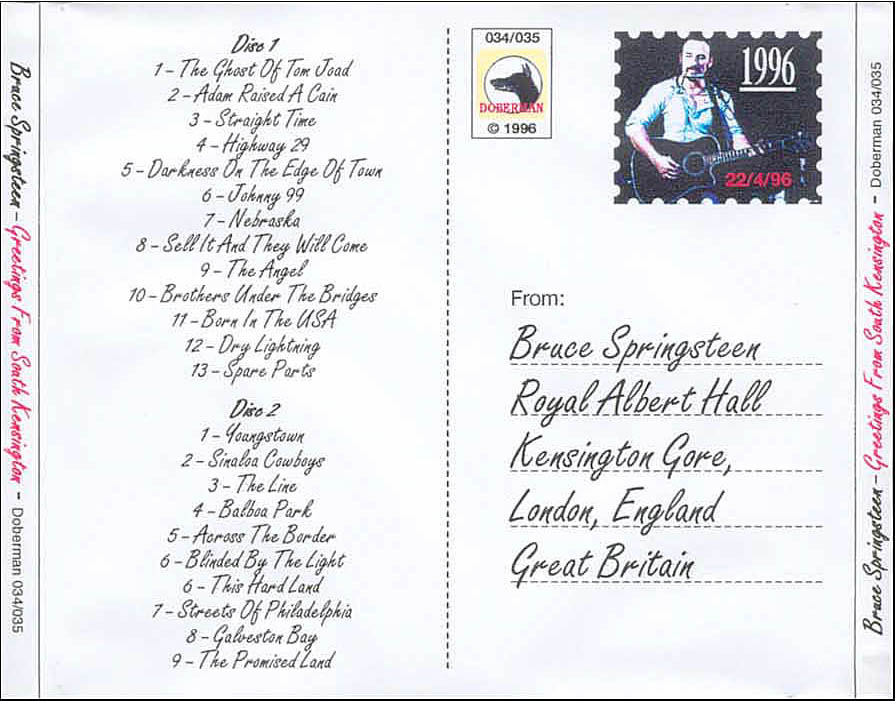 Bruce Springsteen – Greetings From South Kensington - Doberman 034/035
Disc 1
1 – The Ghost Of Tom Joad
2 – Adam Raised A Cain
3 – Straight Time
4 – Highway 29
5 – Darkness On The Edge Of Town
6 – Johnny 99
7 – Nebraska
8 – Sell It And They Will Come
9 – The Angel
10 – Brothers Under The Bridges
11 – Born In The USA
12 – Dry Lightning
13 – Spare Parts
Disc 2
1 – Youngstown
2 – Sinaloa Cowboys
3 – The Line
4 – Balboa Park
5 – Across The Border
6 – Blinded By The Light
6 – This Hard Land
7 – Streets Of Philadelphia
8 – Galveston Bay
9 – The Promised Land
034/035
DOBERMAN
© 1996
1996
22/4/96
From:
Bruce Springsteen
Royal Albert Hall
Kensington Gore,
London, England
Great Britain
Bruce Springsteen – Greetings From South Kensington - Doberman 034/035